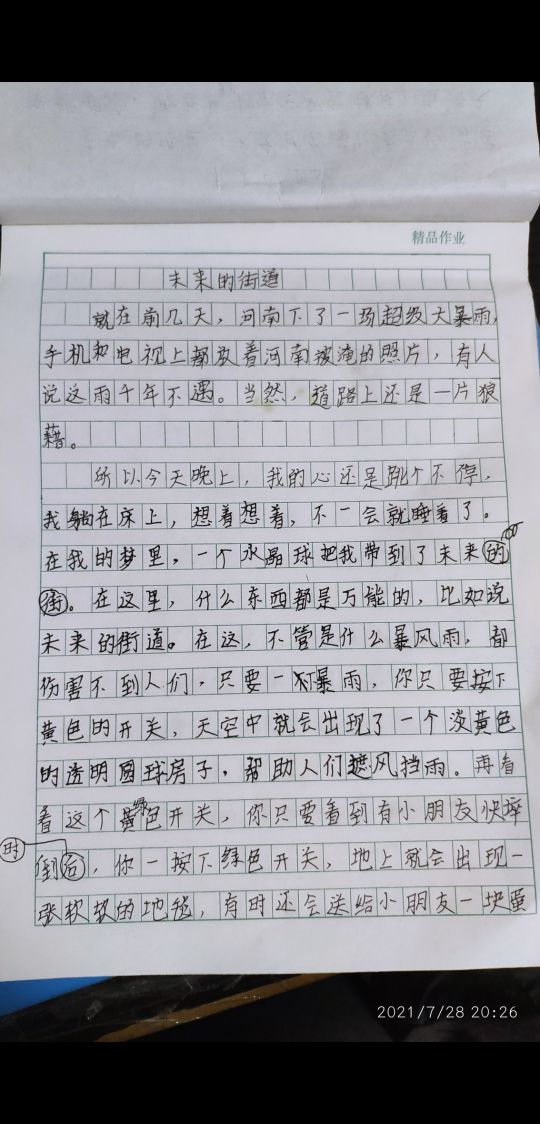 精品作业
未来的街道
就在前几天，河南下了一场超级大暴雨，
手机和电视上都放着河南被淹的照片，有人
说这雨千年不遇。当然，道路上还是一片狼
藉。
所以今天晚上，我的心还是跳个不停，
我躺在床上，想着想着，不一会就睡着了。
在我的梦里，一个水晶球把我带到了未来的
街。在这里，什么东西都是万能的，比如说
未来的街道。在这，不管是什么暴风雨，都
伤害不到人们，只要一有暴雨，你只要按下
黄色的开关，天空中就会出现了一个淡黄色
的透明圆球房子，帮助人们遮风挡雨。再看
看这个绿色开关，你只要看到有小朋友快摔
倒后，你一按下绿色开关，地上就会出现一
时
张软软的地毯，有时还会送给小朋友一块蛋
2021/7/28 20:26